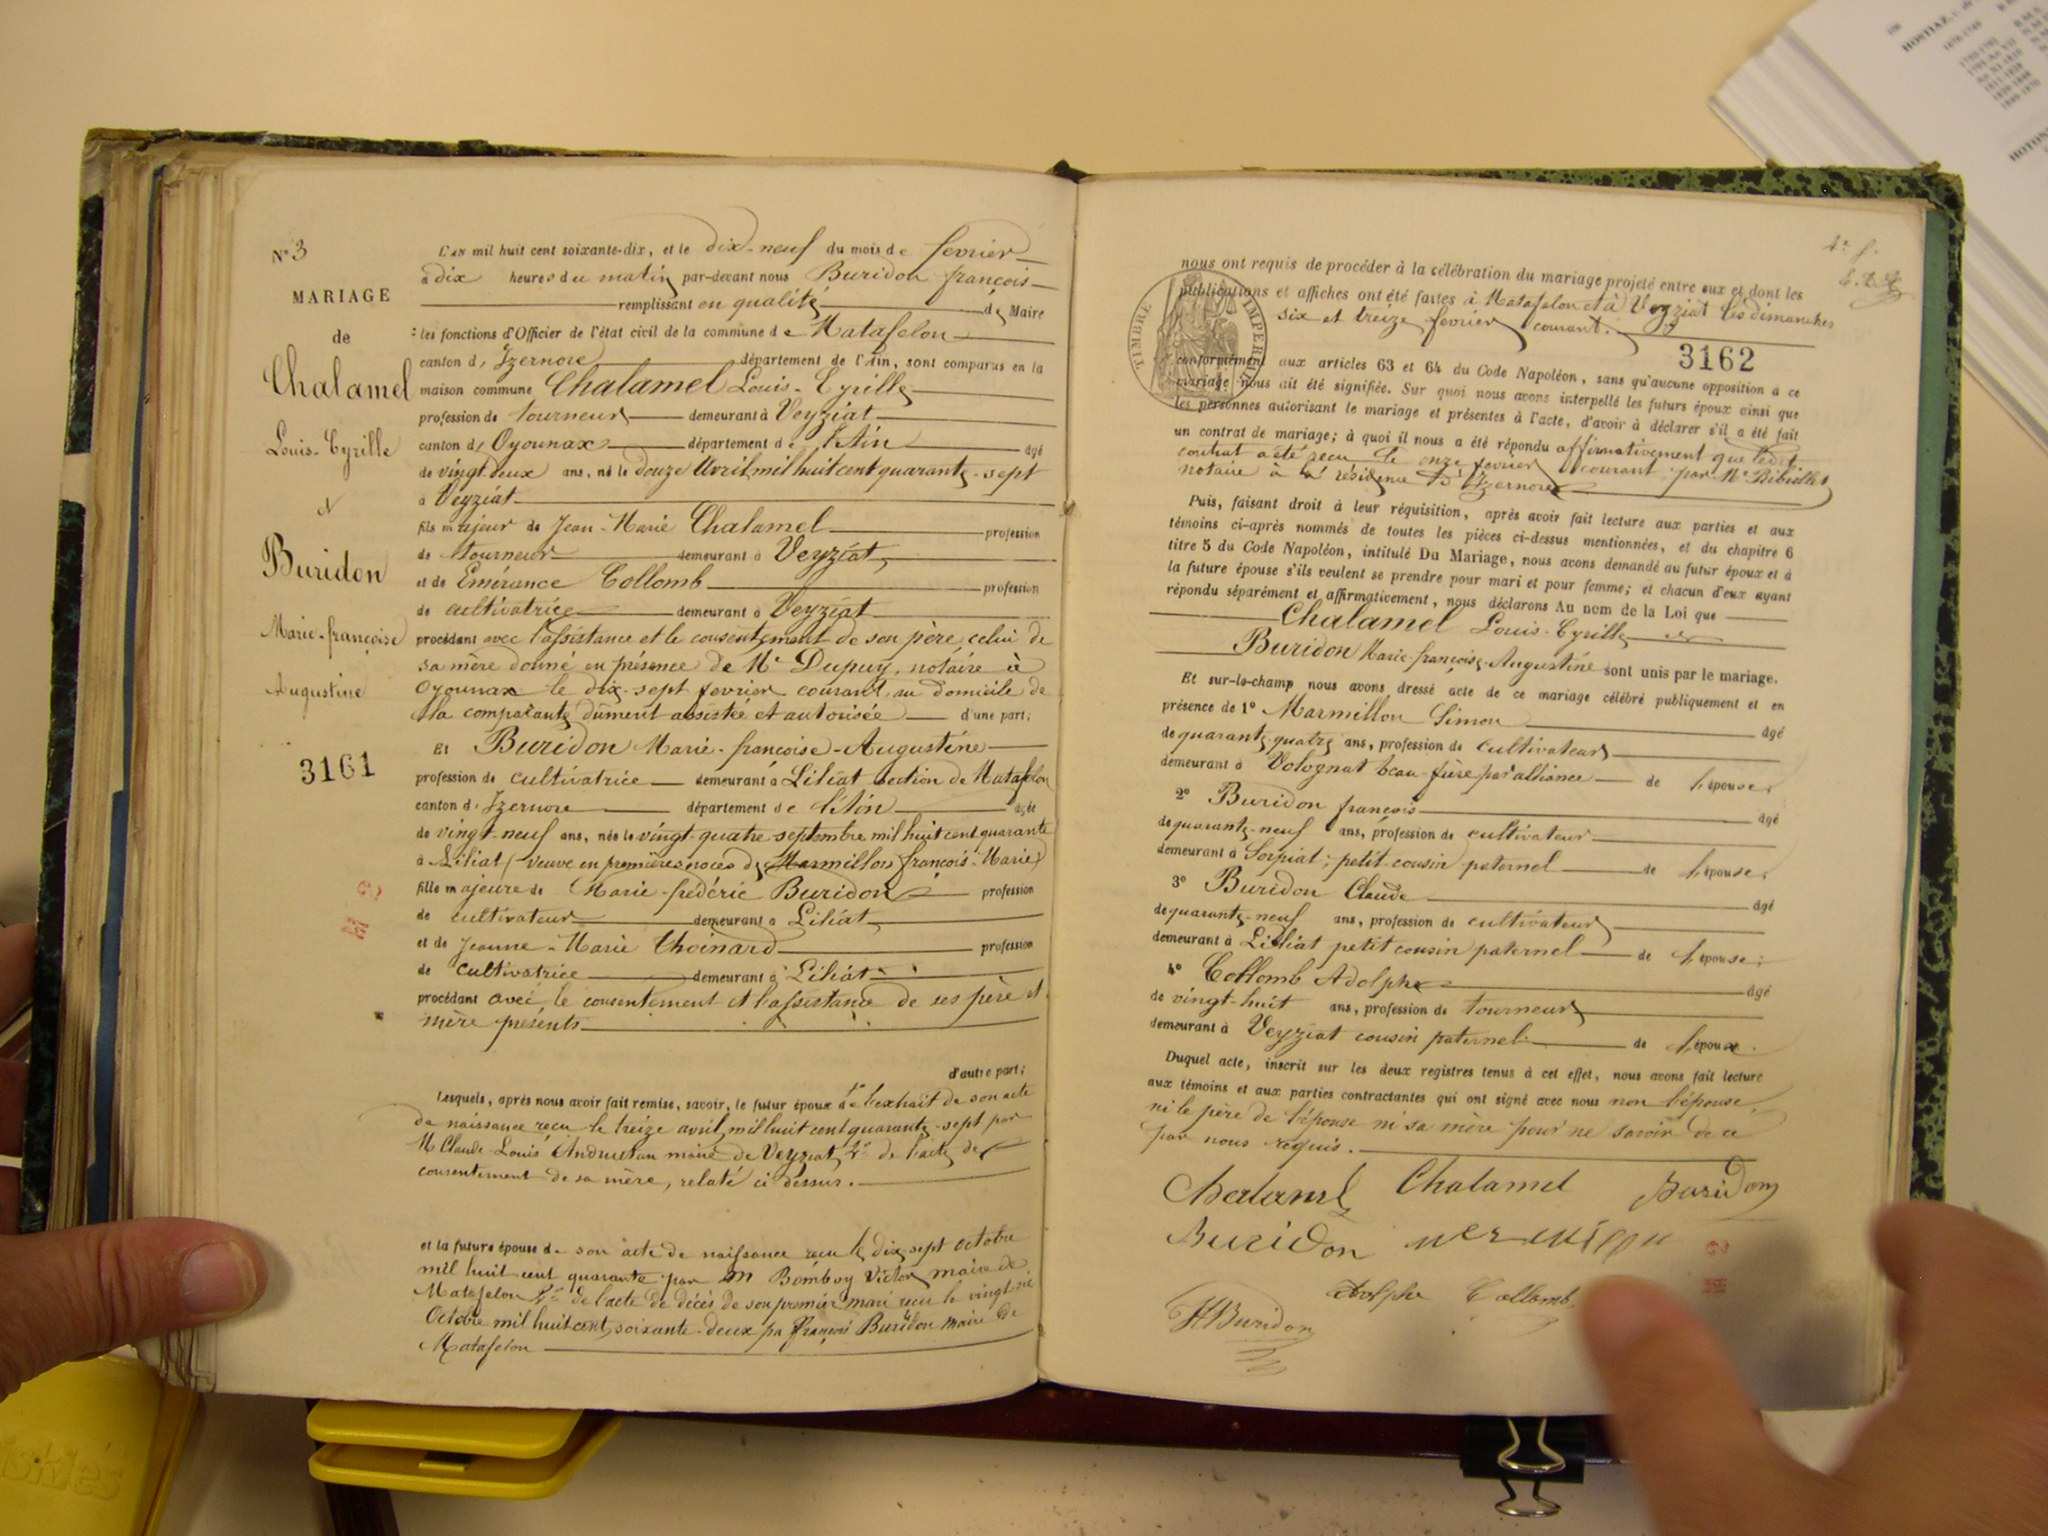 N° 3
MARIAGE
de
Chalamel
Louis-Cyrille
&
Buridon
Marie-françoise
Augustine
3161
L'AN mil huit cent soixante-dix, et le dix-neuf du mois de fevrier
à dix heures du matin par-devant nous Buridon françois
remplissant en qualité de Maire
les fonctions d'Officier de l'état civil de la commune de Matafelon
canton d'Izernore département de l'Ain, sont comparus en la
maison commune Chalamel Louis-Cyrille
profession de tourneur demeurant à Veyziat
canton d'Oyounax département de l'Ain âgé
de vingt deux ans, né le douze Avril mil huit cent quarante-sept
à Veyziat
fils majeur de Jean-Marie Chalamel profession
de tourneur demeurant à Veyziat
et de Emérance Collomb profession
de cultivatrice demeurant à Veyziat
procédant avec l'assistance et le consentement de son père, celui de
sa mère donné en présence de Me Dupuy, notaire à
Oyounax le dix-sept fevrier courant, au domicile de
la comparante dûment assistée et autorisée d'une part;
Et Buridon Marie-françoise-Augustine
profession de cultivatrice demeurant à Liliat section de Matafelon
canton d'Izernore département de l'Ain âgée
de vingt-neuf ans, née le vingt-quatre septembre mil huit cent quarante
à Liliat (veuve en premières noces de Marmillon françois-Marie)
fille majeure de Marie-fréderic Buridon profession
de cultivateur demeurant à Liliat
et de Jeanne-Marie Thoinard profession
de cultivatrice demeurant à Liliat
procédant avec le consentement et l'assistance de ses père et
mère présents
d'autre part;
Lesquels, après nous avoir fait remise, savoir, le futur époux de 1° l'extrait de son acte
de naissance reçu le treize avril mil huit cent quarante-sept par
M Claude Louis maire de Veyziat, 2° de l'acte de
consentement de sa mère, relaté ci dessus.
et la future épouse de son acte de naissance reçu le dix sept octobre
mil huit cent quarante par M Bomboy Victor maire de
Matafelon 2° de l'acte de décès de son premier mari reçu le vingt six
Octobre mil huit cent soixante-deux par françois Buridon maire de
Matafelon
TIMBRE IMPERIAL
nous ont requis de procéder à la célébration du mariage projeté entre eux et dont les
publications et affiches ont été faites à Matafelon et à Veyziat les dimanches
six et treize fevrier courant.
3162
conformément aux articles 63 et 64 du Code Napoléon, sans qu'aucune opposition à ce
mariage nous ait été signifiée. Sur quoi nous avons interpellé les futurs époux ainsi que
les personnes autorisant le mariage et présentes à l'acte, d'avoir à déclarer s'il a été fait
un contrat de mariage; à quoi il nous a été répondu affirmativement que ledit
contrat a été reçu le onze fevrier courant par Me
notaire à la résidence d'Izernore
Puis, faisant droit à leur réquisition, après avoir fait lecture aux parties et aux
témoins ci-après nommés de toutes les pièces ci-dessus mentionnées, et du chapitre 6
titre 5 du Code Napoléon, intitulé Du Mariage, nous avons demandé au futur époux et à
la future épouse s'ils veulent se prendre pour mari et pour femme; et chacun d'eux ayant
répondu séparément et affirmativement, nous déclarons Au nom de la Loi que
Chalamel Louis-Cyrille et
Buridon Marie-françoise-Augustine sont unis par le mariage.
Et sur-le-champ nous avons dressé acte de ce mariage célébré publiquement et en
présence de 1° Marmillon Simon âgé
de quarante quatre ans, profession de cultivateur
demeurant à Volognat beau-frère par alliance de l'épouse,
2° Buridon françois âgé
de quarante-neuf ans, profession de cultivateur
demeurant à Sorpiat; petit-cousin paternel de l'épouse,
3° Buridon Claude âgé
de quarante-neuf ans, profession de cultivateur
demeurant à Liliat petit cousin paternel de l'épouse;
4° Collomb Adolphe âgé
de vingt-huit ans, profession de tourneur
demeurant à Veyziat cousin paternel de l'époux.
Duquel acte, inscrit sur les deux registres tenus à cet effet, nous avons fait lecture
aux témoins et aux parties contractantes qui ont signé avec nous non l'épouse,
ni le père de l'épouse ni sa mère pour ne savoir de ce
par nous requis.
Chalamel Chalamel Buridon
Buridon
Adolphe Collomb
Buridon